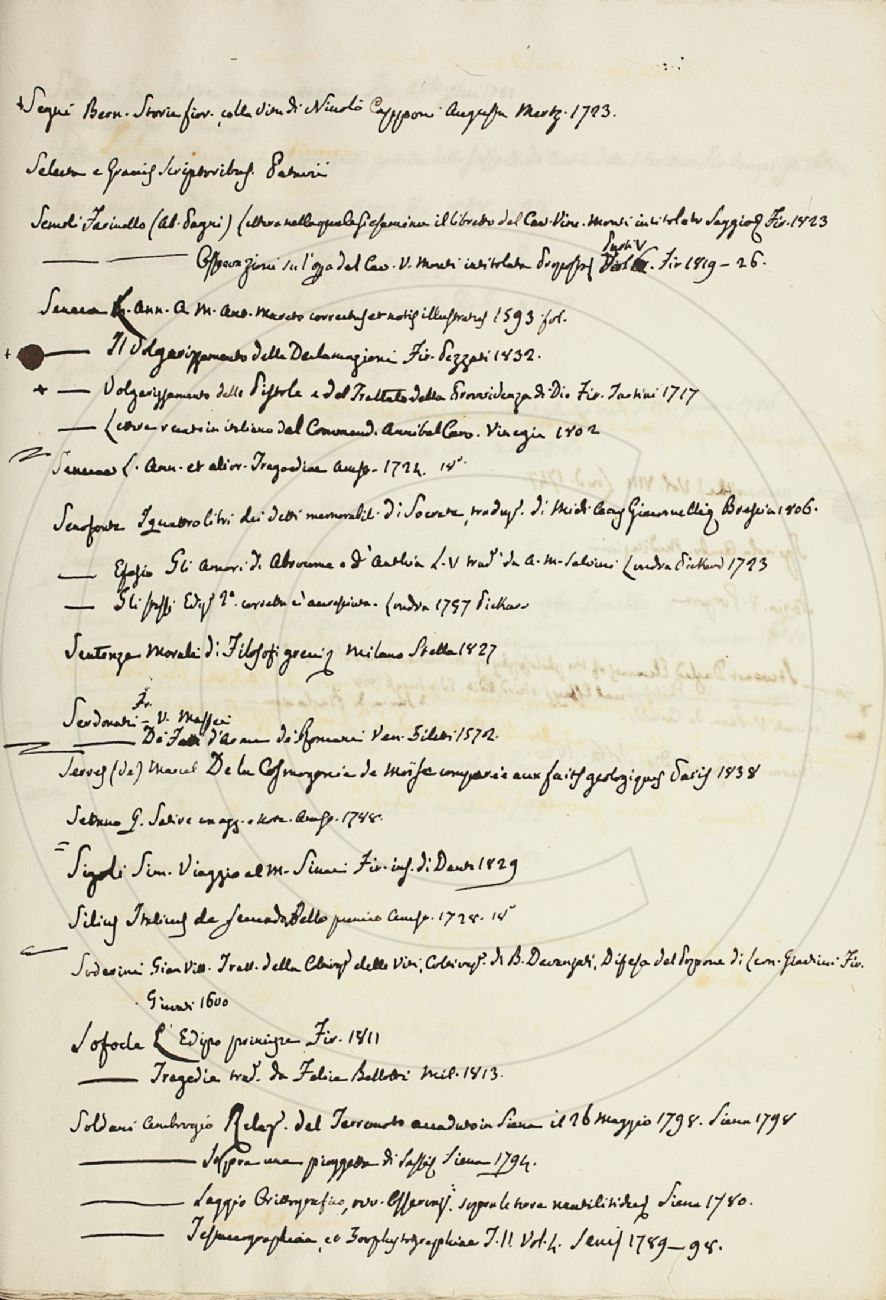 + Segni Bern. Storia fior. colla vita di Niccolò Capponi Augusta Mertz. 1723.
Selecta e Graecis Scriptoribus. Patavii
Farinello (Al. Pagni) Lettera nella quale si esamina il libretto del Cav. Vinc. Monti intitolato Saggio Fir. 1823
—— —— Osservazioni su l'op. del Cav. V. Monti intitolata Proposta Parti V Fir 1819 - 26.
Seneca L. Ann. A M. Ant. Mureto correctus et notis illustratus 1593 fol.
+ —— Il Volgarizzamento delle Declamazioni Fir. Pezzati 1832.
+ —— Volgarizzamento delle Pistole e del Trattato della Provvidenza di Dio Fir. Tartini 1717
—— Lettere recate in italiano dal Commend. Annibal Caro. Vinegia 1802
Seneca L. Ann. et alior. Tragoediae Amst. 1724. 18°
Senofonte I quattro libri dei detti memorabili di Socrate, traduz. di Giacomelli Brescia 1806.
—— Efesio Gli Amori di Abrocome e d'Anthia L. V trad. da A. M. Salvini Londra Pickard 1723
—— Gli stessi Ediz. 2ª. corretta e accresciuta. Londra 1757 Pickar
Sentenze Morali di Filosofi greci Milano Stella 1827
Serdonati Fr. - V. Maffei
—— De' Fatti d'Arme de' Romani Ven. Ziletti 1572.
Serres (de) Marcel De la Cosmogonie de Moïse comparée aux faits geologiques Paris 1838
Settano Q. Satire con agg. e note. Amst. 1788.
= Sigoli Sim. Viaggio al M. Sinai Fir. ins. di Dante 1829
Silius Italicus de secundo Bello punico Amst. 1728. 18°
Soderini Gian Vitt. Tratt. della Coltivaz. delle Viti, Coltivaz. di B. Davanzati, Difesa del Popone di Leon. Giachini Fir.
Giunti 1600
Sofocle L'Edipo principe Fir. 1811
—— Tragedie trad. da Felice Bellotti Mil. 1813.
Soldani Ambrogio Relaz. del Terremoto accaduto in Siena il 26 Maggio 1798. Siena 1798
—— Sopra una pioggetta di Sassi Siena 1794.
—— Saggio Orittografico, ovv. Osservaz. sopra le terre nautilitiche Siena 1780.
—— Testaceographiae, et Zoophytographiae T. II Vol. 4. Senis 1789 - 98.